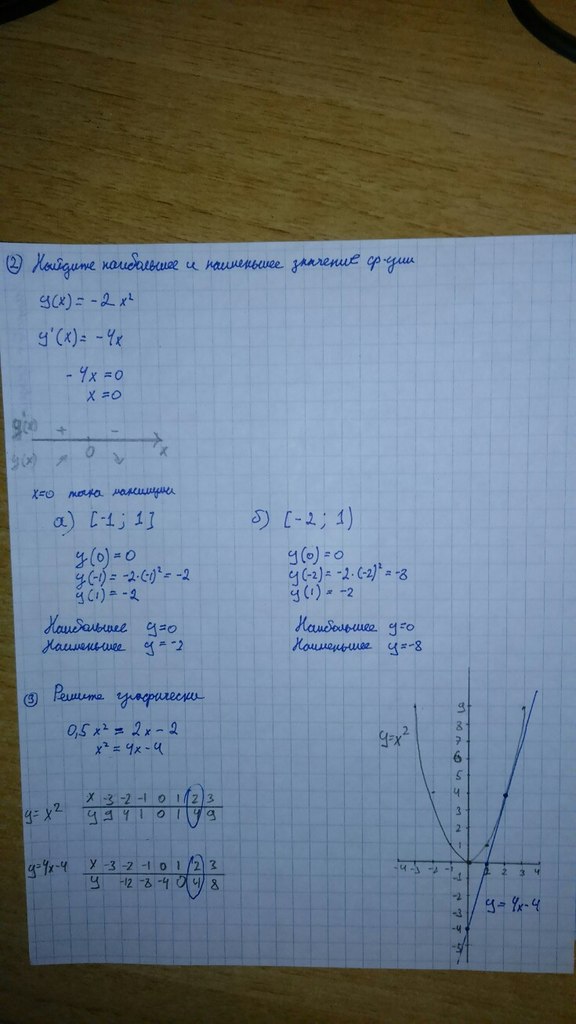 ② Найдите наибольшее и наименьшее значение ф-ции
y(x) = -2x²
y'(x) = -4x
-4x = 0
x = 0
y'(x) + -
0 x
y(x) ↗ ↘
x=0 точка максимума
а) [-1; 1] б) [-2; 1)
y(0) = 0 y(0) = 0
y(-1) = -2·(-1)² = -2 y(-2) = -2·(-2)² = -8
y(1) = -2 y(1) = -2
Наибольшее y=0 Наибольшее y=0
Наименьшее y=-2 Наименьшее y=-8
③ Решите графически
0,5x² = 2x - 2
x² = 4x - 4
y = x²
x -3 -2 -1 0 1 2 3
y 9 4 1 0 1 4 9
y=4x-4
x -3 -2 -1 0 1 2 3
y -12 -8 -4 0 4 8
y=x²
9
8
7
6
5
4
3
2
1
-4 -3 -2 -1 0 1 2 3 4
-1
-2
-3
-4
-5
y=4x-4